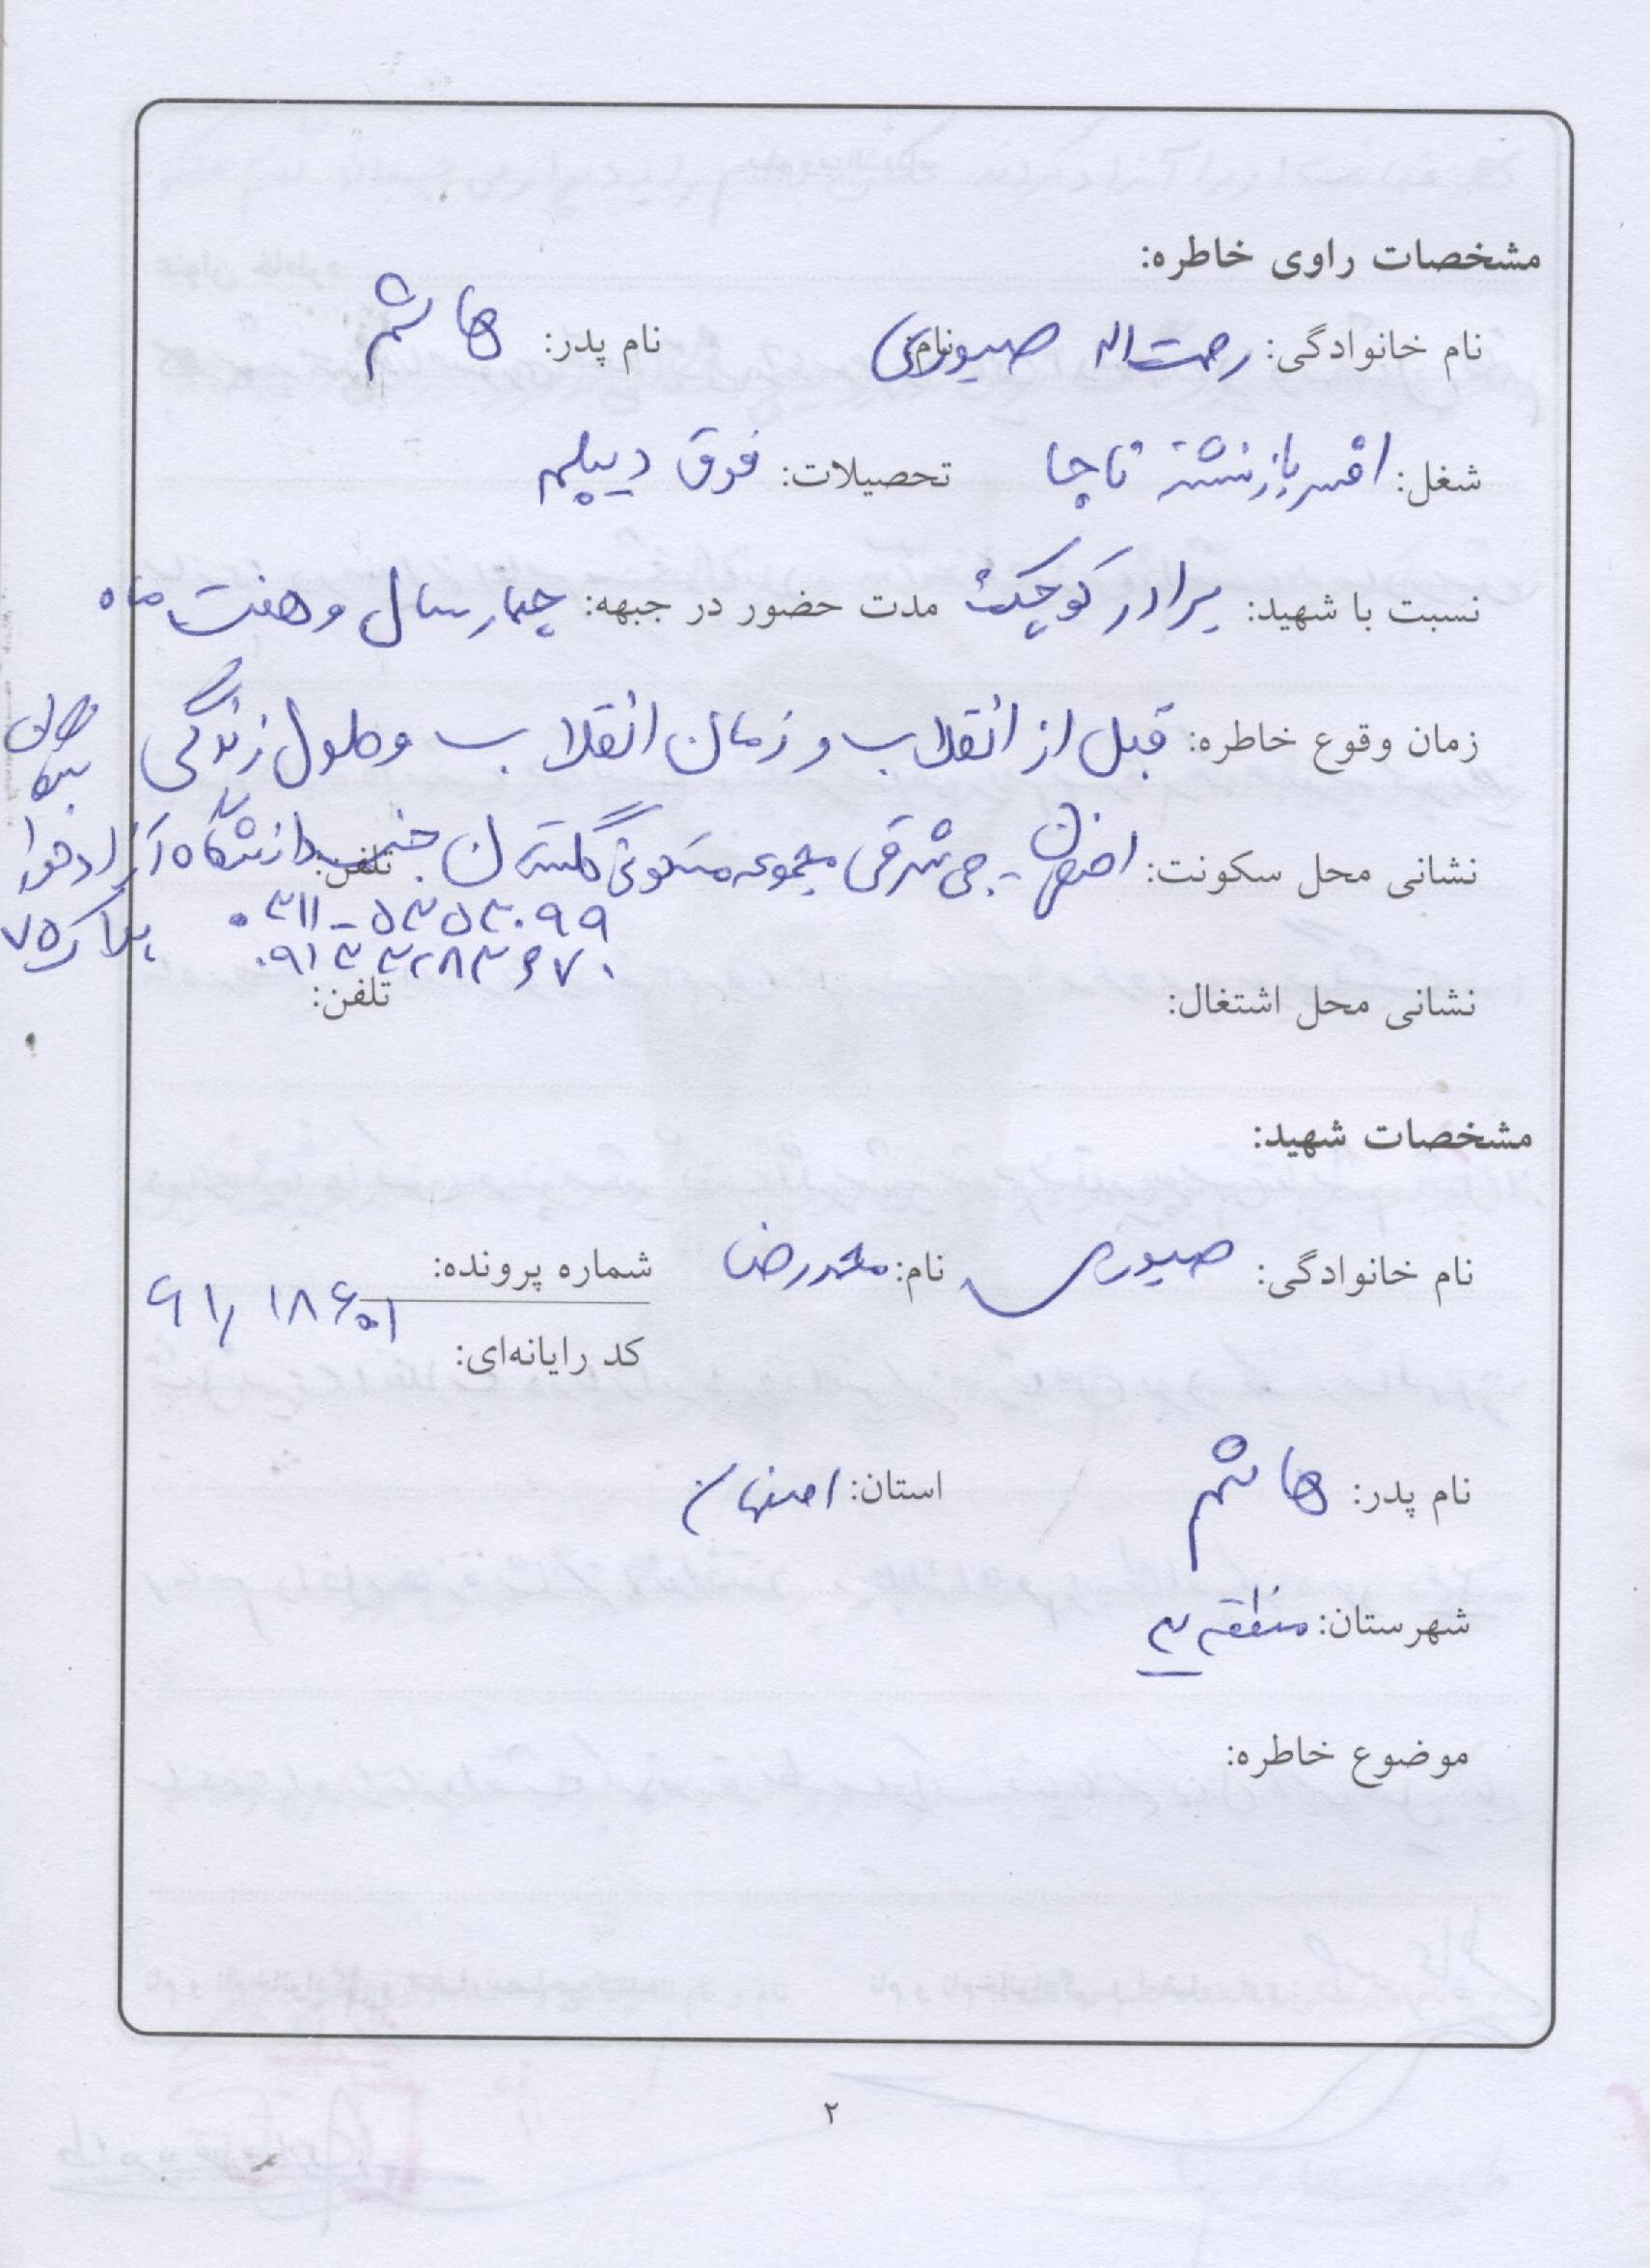 مشخصات راوی خاطره:
نام خانوادگی: رحمت اله صیوری نام: نام پدر: هاشم
شغل: افسر بازنشسته ناجا تحصیلات: فوق دیپلم
نسبت با شهید: برادر کوچک مدت حضور در جبهه: چهار سال و هفت ماه
زمان وقوع خاطره: قبل از انقلاب و زمان انقلاب و طول زندگی
نشانی محل سکونت: اصفهان - جی شرقی مجموعه مسکونی گلستان جنب دانشگاه آزاد تلفن:
پلاک ۷۵
نشانی محل اشتغال: تلفن:
مشخصات شهید:
نام خانوادگی: صیوری نام: محمدرضا شماره پرونده:
کد رایانه‌ای:
نام پدر: هاشم استان: اصفهان
شهرستان: منطقه ۳
موضوع خاطره:
۲